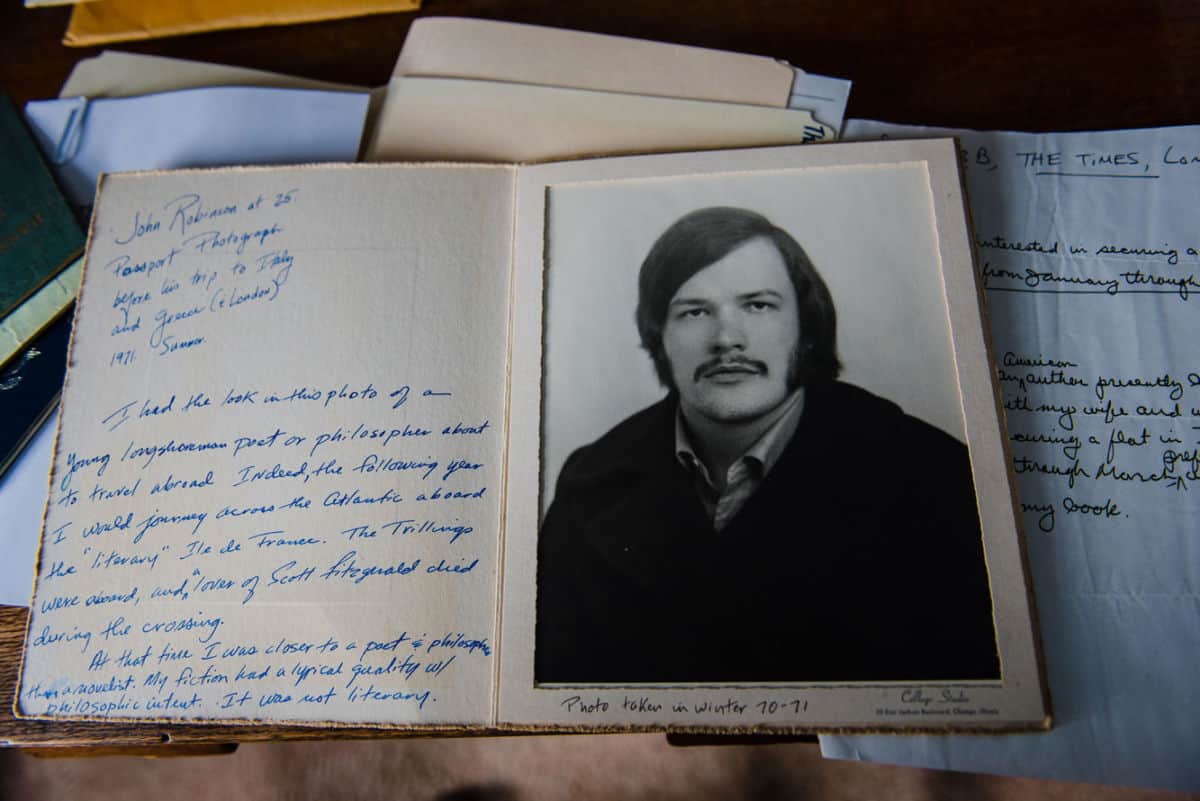 John Robinson at 25.
Passport Photograph
before his trip to Italy
and Greece (& London)
1971. Summer.
I had the look in this photo of a
young longshoreman poet or philosopher about
to travel abroad. Indeed, the following year
I would journey across the Atlantic aboard
the "literary" Ile de France. The Trillings
were aboard, and a lover of Scott Fitzgerald died
during the crossing.
At that time I was closer to a poet & philosopher
than a novelist. My fiction had a lyrical quality w/
philosophic intent. It was not literary.
Photo taken in winter 70-71
College Studio
Chicago, Illinois
Th
B, THE TIMES, Lon
interested in securing a
from January through
American
an author presently
ith my wife and
curing a flat in
pref
through March
my book.